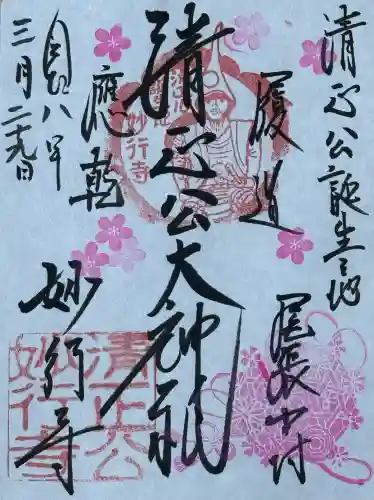 清正公誕生之地
尾張中村
履道
清正公大神祇
應乾
妙行寺
三月二十九日
清正公
妙行寺
妙行寺